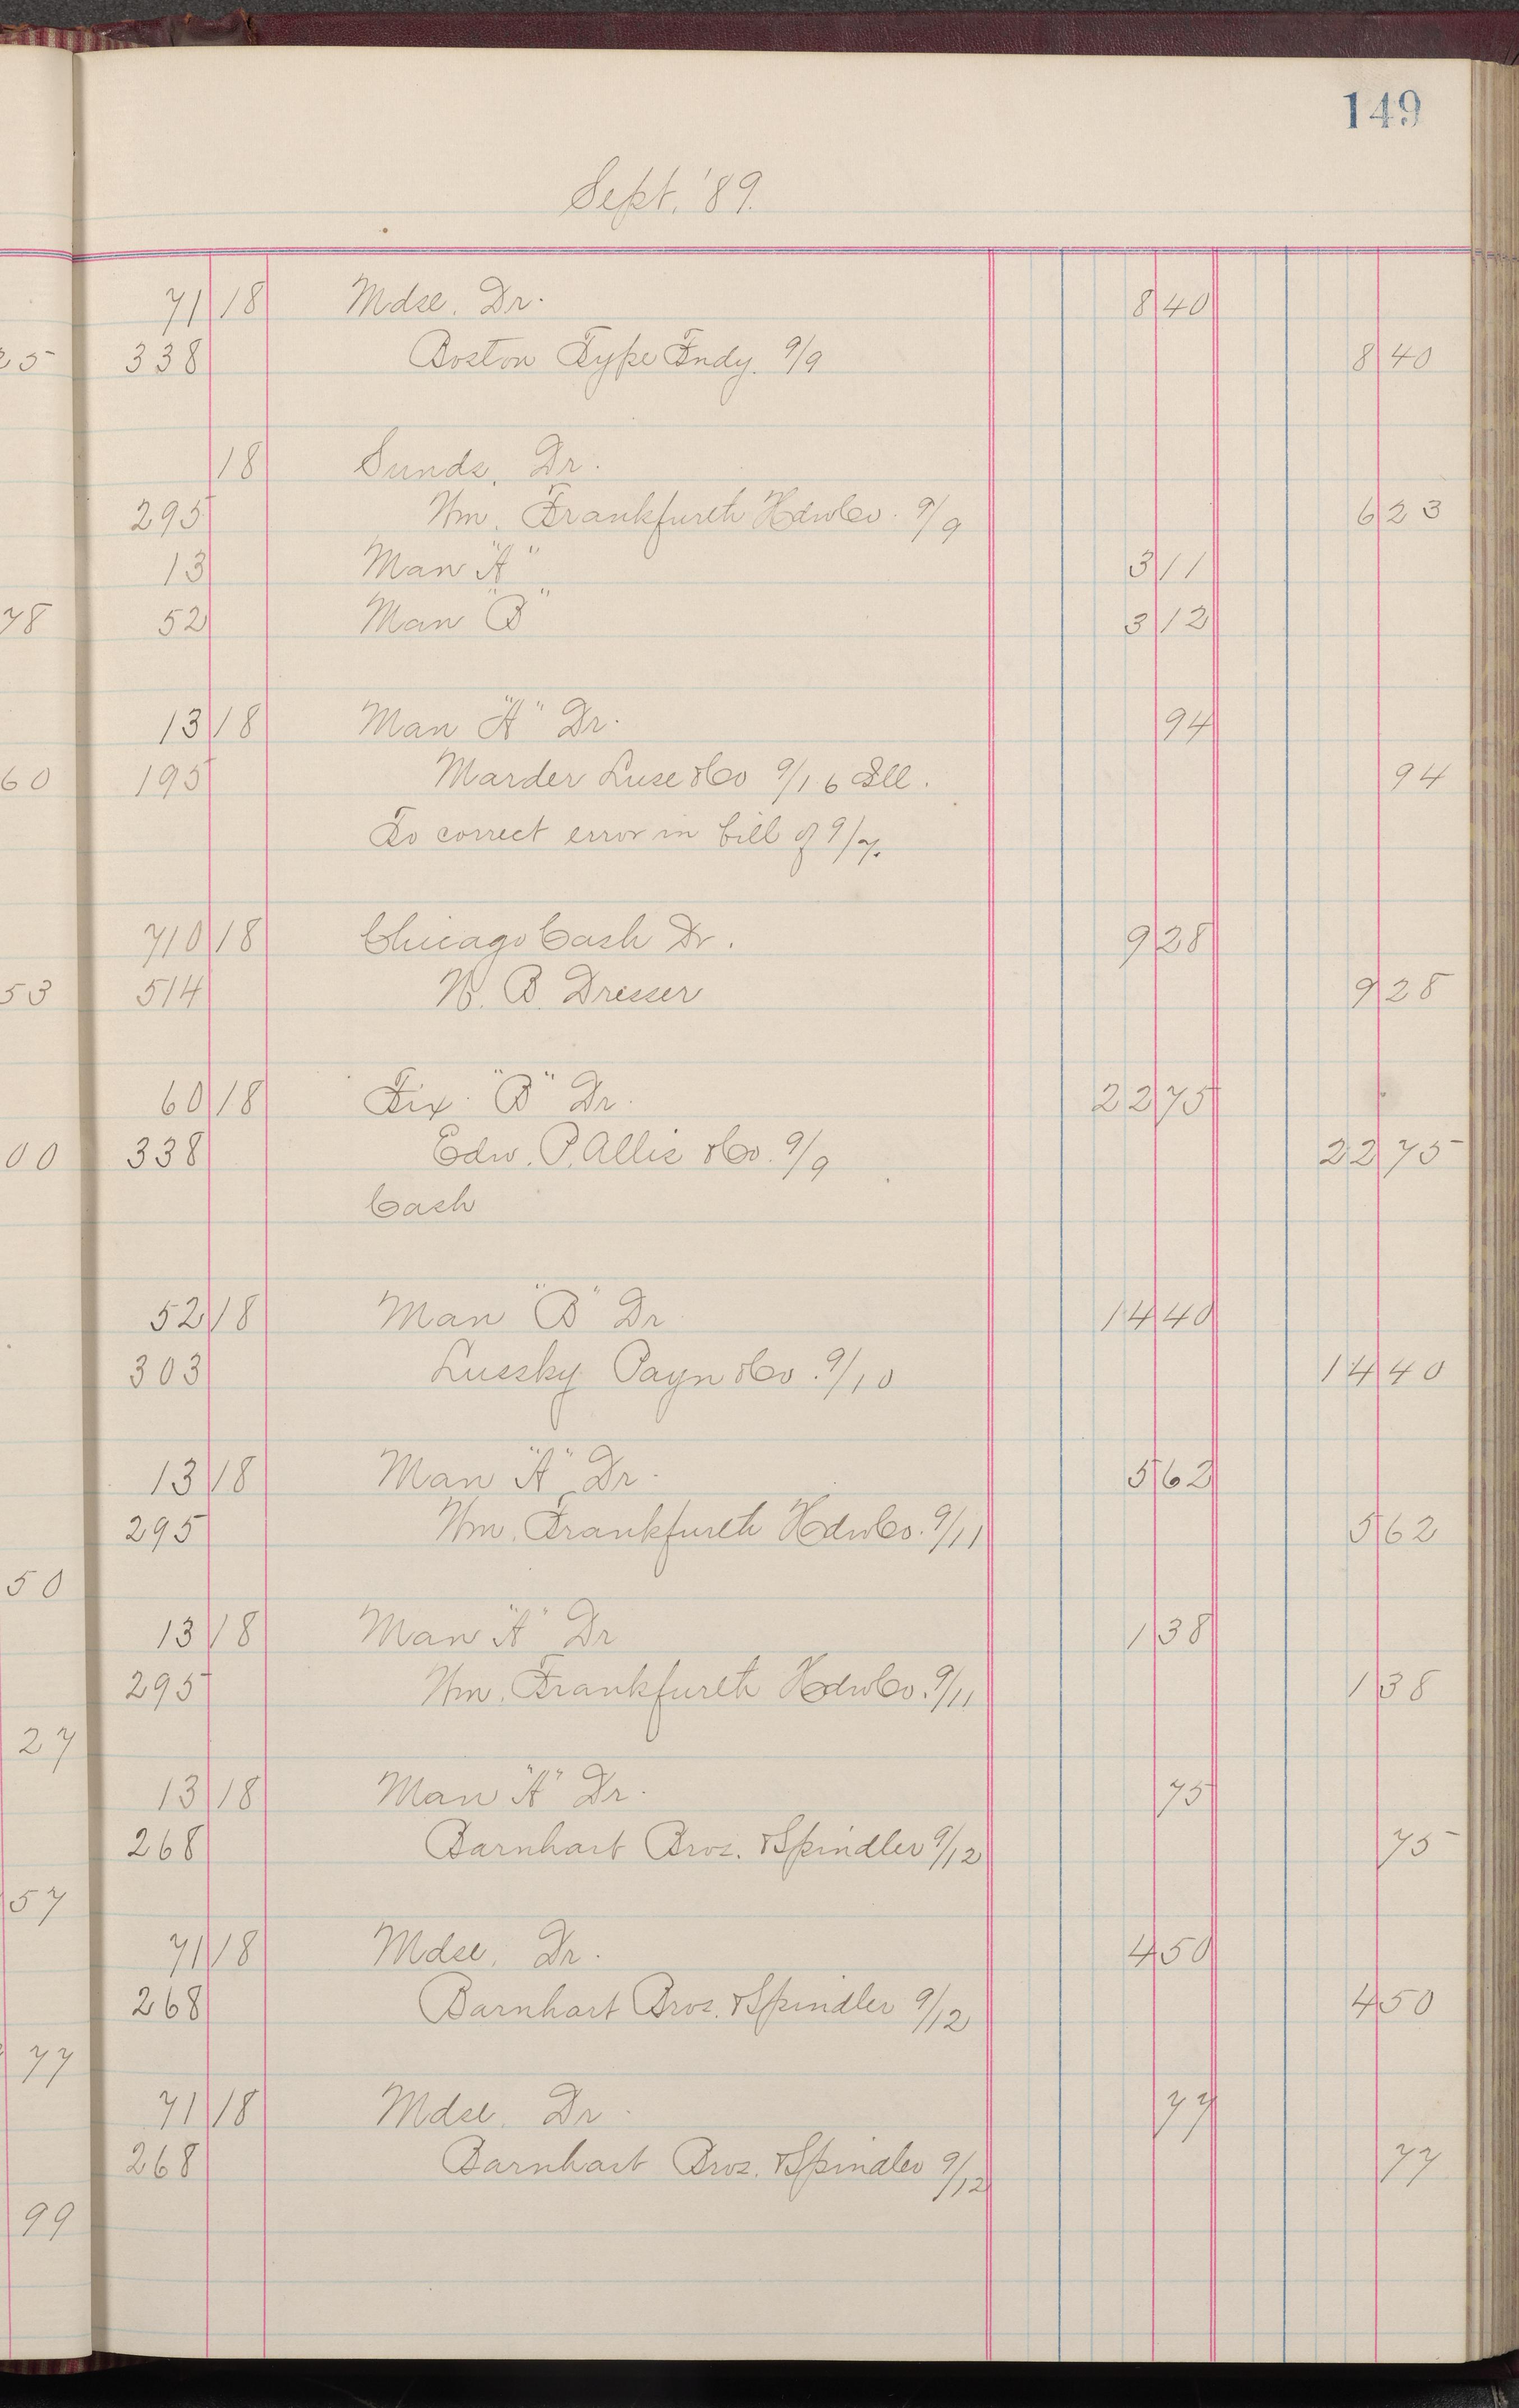 149
Sept. '89.
71 18 Mdse. Dr. 8 40
25 338 Boston Type Fndy. 9/9 8 40
18 Sunds. Dr.
295 Wm. Frankfurth Hdw Co. 9/9 6 23
13 Man "A" 3 11
78 52 Man "B" 3 12
13 18 Man "A" Dr. 94
60 195 Marder Luse & Co 9/16 Ill. 94
To correct error in bill of 9/7.
710 18 Chicago Cash Dr. 9 28
53 514 W. B. Dresser 9 28
60 18 Fix. "B" Dr. 22 75
00 338 Edw. P. Allis & Co. 9/9 22 75
Cash
52 18 Man "B" Dr 14 40
303 Lussky Payn & Co. 9/10 14 40
13 18 Man "A" Dr. 5 62
295 Wm. Frankfurth Hdw Co. 9/11 5 62
50
13 18 Man "A" Dr 1 38
295 Wm. Frankfurth Hdw Co. 9/11 1 38
27
13 18 Man "A" Dr. 75
268 Barnhart Bros. & Spindler 9/12 75
57
71 18 Mdse. Dr. 4 50
268 Barnhart Bros. & Spindler 9/12 4 50
77
71 18 Mdse. Dr. 77
268 Barnhart Bros. & Spindler 9/12 77
99